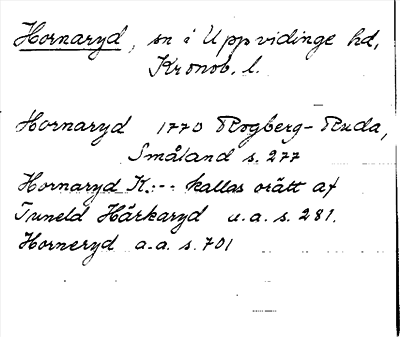 Hornaryd, sn i Uppvidinge hd,
Kronob. l.
Hornaryd 1770 Rogberg-Ruda,
Småland s. 277
Hornaryd K:-- kallas orätt af
Tuneld Härkaryd u.a. s. 281.
Horneryd a.a. s. 701